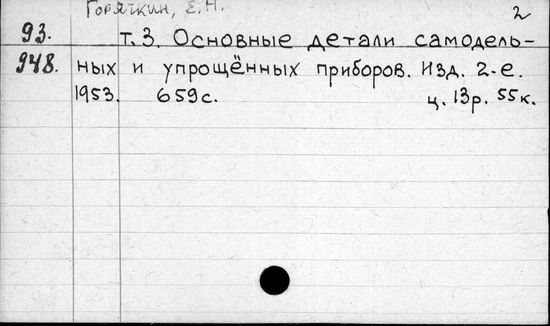 Горячкин, Е.Н. 2
93. т.3. Основные детали самодель-
948. ных и упрощённых приборов. Изд. 2-е.
1953. 659с. ц. 13р. 55к.